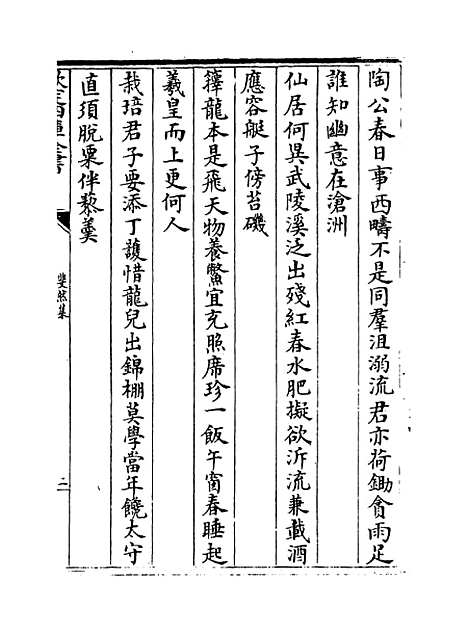 陶公春日事西疇不是同羣沮溺流君亦荷鋤貪雨足
誰知幽意在滄洲
仙居何異武陵溪泛出殘紅春水肥擬欲泝流兼載酒
應容艇子傍苔磯
籜龍本是飛天物養鱉宜充照席珍一飯午窗春睡起
羲皇而上更何人
栽培君子要添丁護惜龍兒出錦棚莫學當年饞太守
直須脫粟伴藜羹
斐然集
二